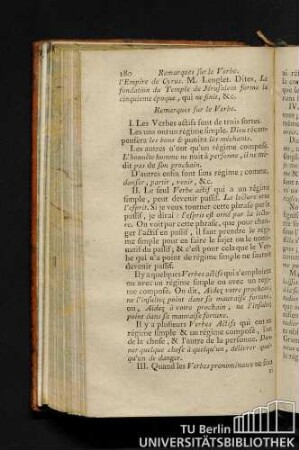 180 Remarques sur le Verbe.
l'Empire de Cyrus. M. Lenglet. Dites, La
fondation du Temple de Jérusalem forme la
cinquieme époque, qui ne finit, &c.
Remarques sur le Verbe.
I. Les Verbes actifs sont de trois sortes.
Les uns ont un régime simple. Dieu récom-
pensera les bons & punira les méchants.
Les autres n'ont qu'un régime composé.
L'honnête homme ne nuit à personne, il ne mé-
dit pas de son prochain.
D'autres enfin sont sans régime; comme,
danser, partir, venir, &c.
II. Le seul Verbe actif qui a un régime
simple, peut devenir passif. La lecture orne
l'esprit. Si je veux tourner cette phrase par le
passif, je dirai: l'esprit est orné par la lectu-
re. On voit par cette phrase, que pour chan-
ger l'actif en passif, il faut prendre le régi-
me simple pour en faire le sujet ou le nomi-
natif du passif, & c'est pour cela que le Ver-
be qui n'a point de régime simple ne sauroit
devenir passif.
Il y a quelques Verbes actifs qui s'emploient
ou avec un régime simple ou avec un régi-
me composé. On dit, Aidez votre prochain,
ne l'insultez point dans sa mauvaise fortune,
ou, Aidez à votre prochain, ne l'insultez
point dans sa mauvaise fortune.
Il y a plusieurs Verbes Actifs qui ont un
régime simple & un régime composé, l'un
de la chose, & l'autre de la personne. Don-
ner quelque chose à quelqu'un, délivrer quel-
qu'un de danger.
III. Quand les Verbes pronominaux ne sont
TU Berlin
UNIVERSITÄTSBIBLIOTHEK